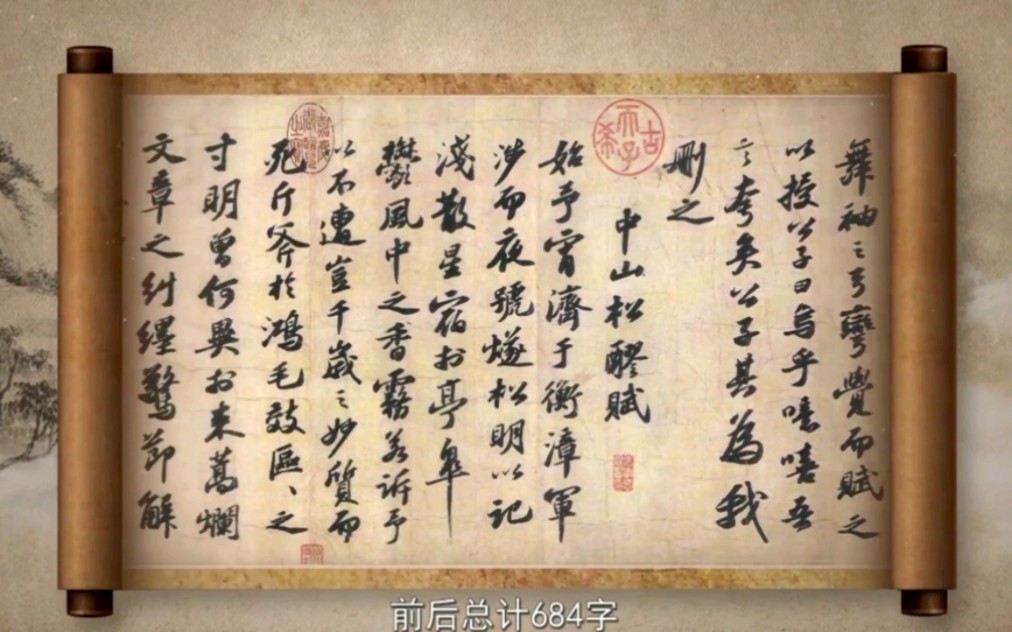 舞袖之乎弯觉而赋之
以授公子曰乌乎噫嘻吾
言夸矣公子其為我
删之
中山松醪賦
始予宵濟于衡漳軍
涉而夜號燧松明以記
淺散星宿於亭皋
鬱風中之香霧若訴予
以不遭豈千歲之妙質而
死斤斧於鴻毛效區〻之
寸明曾何異於束蒿爛
文章之糾纆驚節解
古希天子
前后总计684字